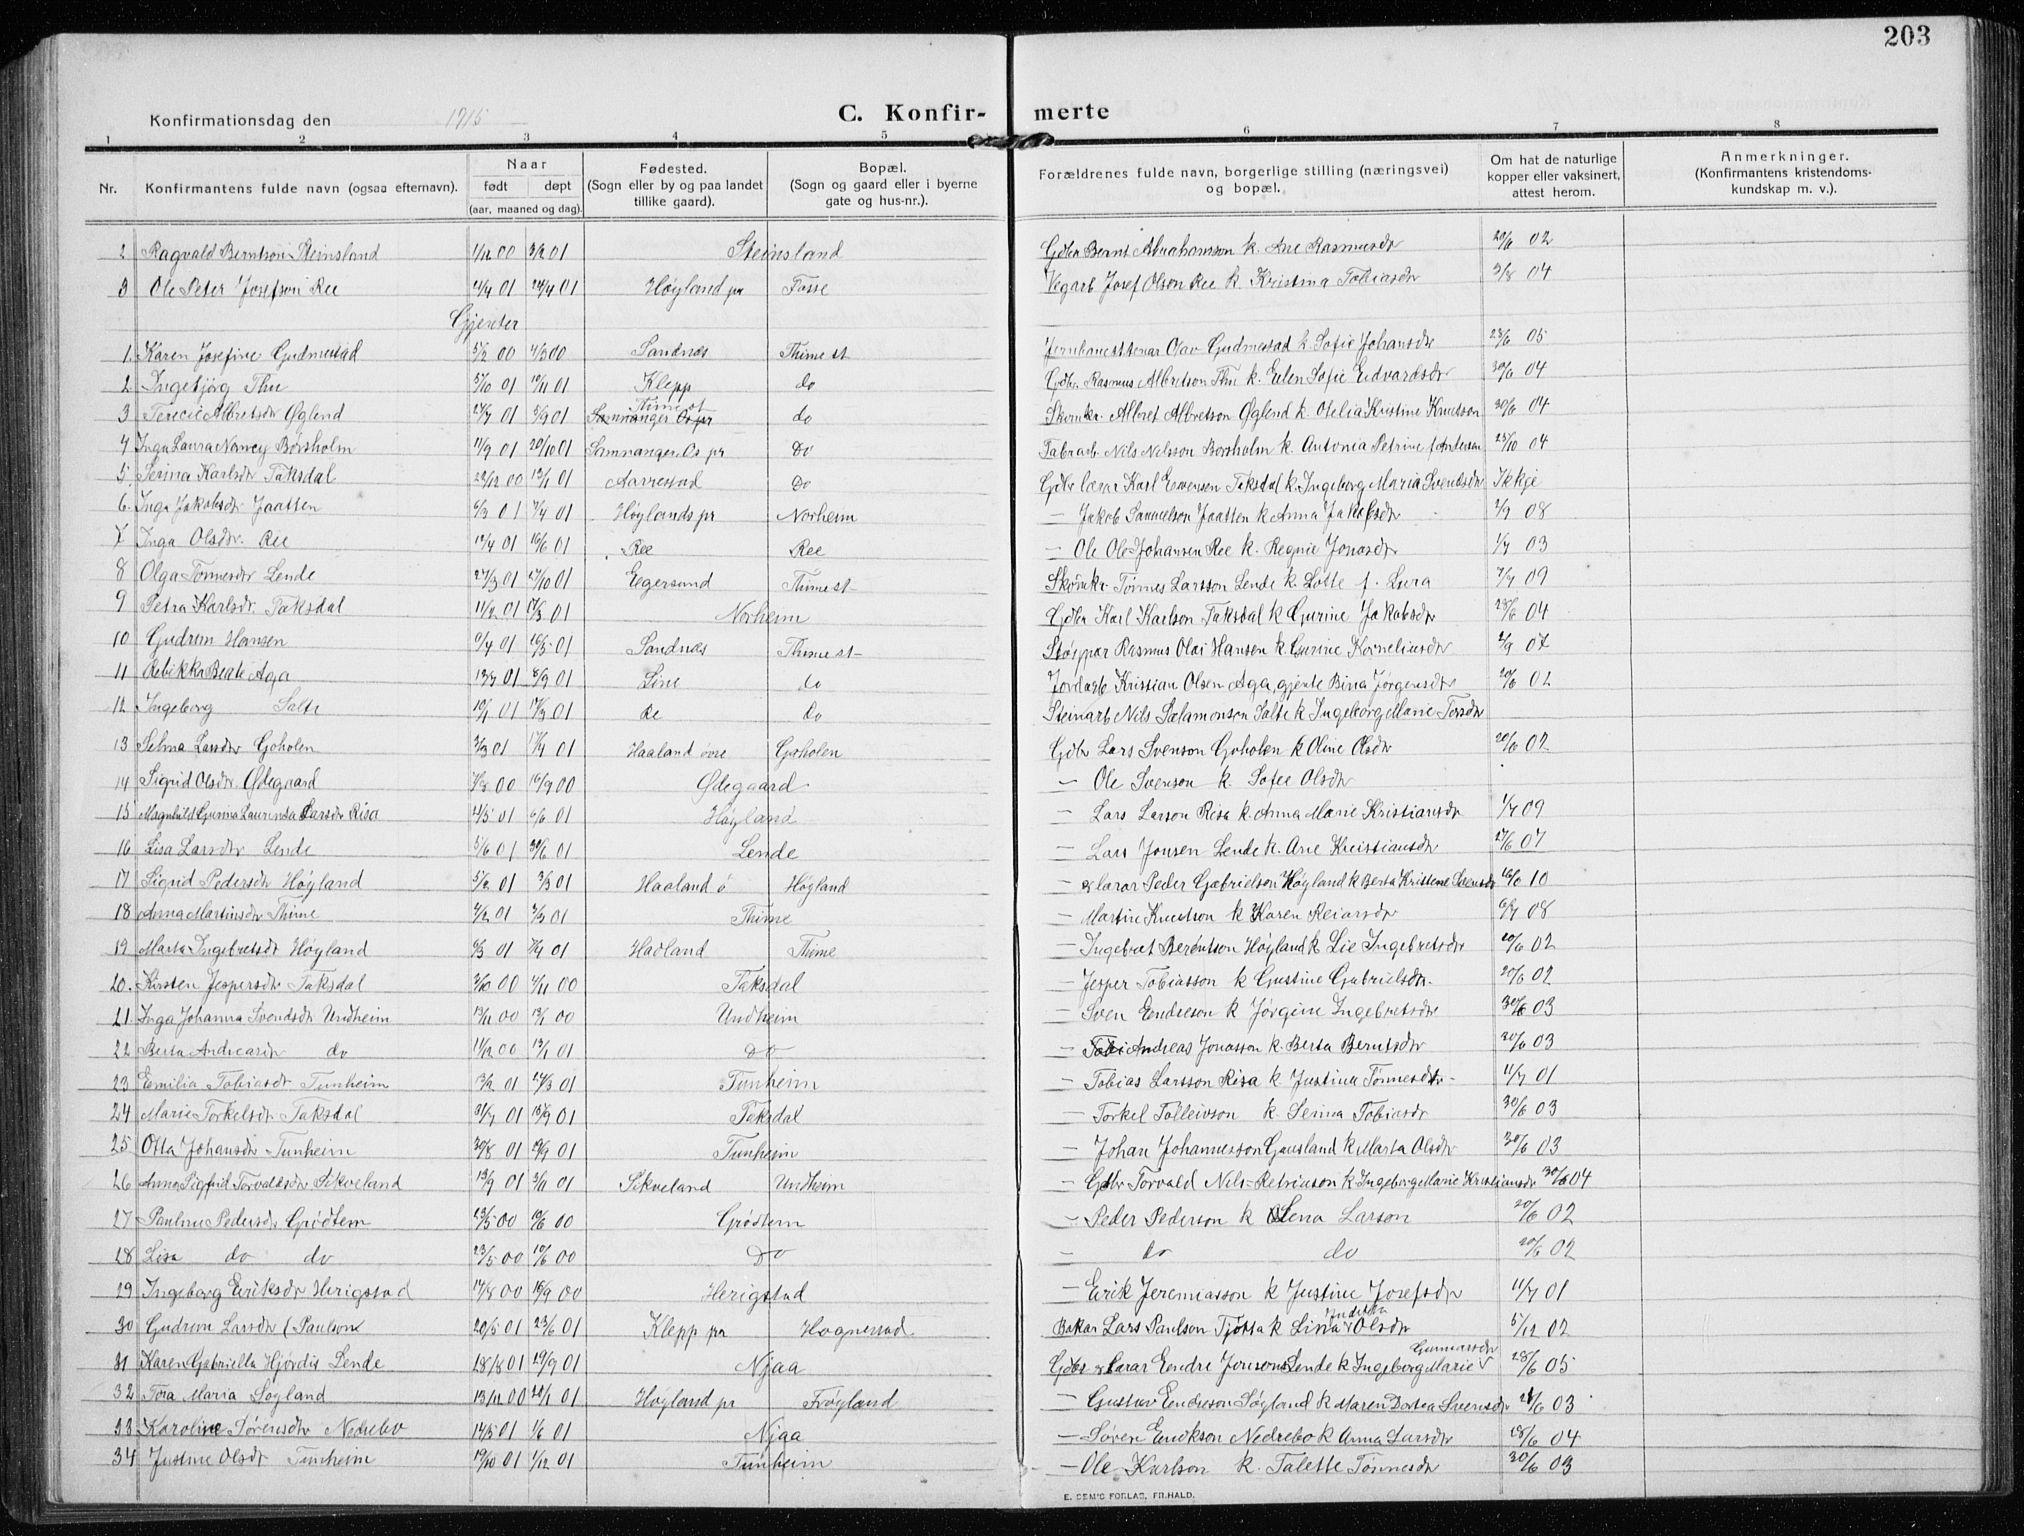 203
Konfirmationsdag den 1915
C. Konfir-merte
1 2 3 4 5 6 7 8
Nr. Konfirmantens fulde navn (ogsaa efternavn). Naar født døpt (aar, maaned og dag). Fødested. (Sogn eller by og paa landet tillike gaard). Bopæl. (Sogn og gaard eller i byerne gate og hus-nr.). Forældrenes fulde navn, borgerlige stilling (næringsvei) og bopæl. Om hat de naturlige kopper eller vaksinert, attest herom. Anmerkninger. (Konfirmantens kristendoms-kundskap m. v.).
2 Ragvald Berntson Steinsland 1/12 00 3/2 01 Steinsland Gdbr Bernt Abrahamson k. Ane Rasmusdr 20/6 02
3 Ole Peter Josefson Ree 4/4 01 28/4 01 Høyland pr Fosse Vegarb Josef Olson Ree k. Kristina Tobiasdr 3/8 04
Gjenter
1. Karen Josefine Gudmestad 5/2 00 4/3 00 Sandnæs Thime st Olav Gudmestad k Sofie Johansdr 28/6 05
2 Ingebjøg Thu 5/10 01 10/11 01 Klepp do Gdbr. Rasmus Albretson Thu k. Elen Sofie Edvardsdr 30/6 04
3 Terecie Albretsdr Øglend 27/7 01 8/9 01 Thime st do Albret Albretson Øglend k. Otelia Kristine Knudson 30/6 04
4 Inga Laura Nancy Borsholm 11/9 01 20/10 01 Samnanger Os pr Do Fabrarb Nils Nilsson Borsholm k. Antonia Petrine f Andersen 25/10 04
5. Serina Karlsdr Taksdal 28/12 00 13/1 01 Aavrestad Do Gdbr lærar Karl Evensen Taksdal k. Ingeborg Maria Svendsdr Ikkje
6. Inga Jakobsdr Jaatten 6/3 01 7/4 01 Høylands pr Norheim — Jakob Samuelson Jaatten k Anna Jakobsdr 2/9 08
7 Inga Olsdr. Ree 12/4 01 16/6 01 Ree Ree — Ole Ole Johansen Ree k. Regnie Jonasdr 1/7 03
8 Olga Tønnesdr Lende 27/3 01 27/10 01 Egersund Thime st Tønnes Larsson Lende k. Lotte f. Lura 7/7 09
9 Petra Karlsdr. Taksdal 11/2 01 17/3 01 Norheim Gdbr Karl Karlson Taksdal k Gurine Jakobsdr 28/6 04
10 Gudrun Hansen 9/4 01 16/5 01 Sandnæs Thime st Rasmus Olai Hansen k. Gurine Korneliusdr 2/9 07
11 Rebekka Beate Aga 13/7 01 8/9 01 Line do Jordarb Kristian Olsen Aga, gjente Bina Jørgensdr 20/6 02
12 Ingeborg Salte 10/1 01 17/3 01 Re Do Steinarb Nils Salamonson Salte k Ingeborg Marie Torsdr
13 Selma Larsdr Goholen 3/3 01 17/4 01 Haaland øvre Goholen Gdbr Lars Svenson Goholen k Oline Olsdr 20/6 02
14 Sigrid Olsdr Ødegaard 16/9 00 Ødegaard — Ole Svenson k. Sofie Olsdr
15 Magnhild Gurina Laurensa Larsdr Risa 4/5 01 6/6 01 Høyland — Lars Larson Risa k. Anna Marie Kristiansdr 1/7 09
16 Lisa Larsdr Lende 5/6 01 30/6 01 Lende — Lars Jonsen Lende k. Ane Kristiansdr 27/6 07
17 Sigrid Pedersdr Høyland 5/2 01 3/3 01 Haaland ø Høyland — & lærar Peder Gabrielson Høyland k Berta Kristene Svensdr 16/6 10
18 Anna Martinsdr Thime 2/2 01 3/3 01 Thime — Martin Knudson k Karen Reiarsdr 6/7 08
19 Marta Ingebretsdr Høyland 6/3 01 7/4 01 Haaland Thime — Ingebret Berentson Høyland k Lie Ingebretsdr 20/6 02
20. Kirsten Jespersdr Taksdal 3/10 00 4/11 00 Taksdal — Jesper Tobiasson k Gustine Gabrielsdr. 20/6 02
21. Inga Johanna Svendsdr Undheim Undheim — Sven Eendreson k Jørgine Ingebretsdr 30/6 03
22 Berta Andreasdr do 11/12 00 13/1 01 Do — Andreas Jonasson k. Berta Berntsdr 20/6 03
23 Emilia Tobiasdr Tunheim 13/2 01 24/3 01 Tunheim — Tobias Larsson Risa k Justina Tønnesdtr 11/7 01
24 Marie Torkelsdr. Taksdal 31/7 01 15/9 01 Taksdal — Torkel Tolleivson k. Serina Tobiasdr 30/6 03
25 Otta Johansdr Tunheim 30/8 01 19/9 01 Tunheim — Johan Johannesson Gausland k Marta Olsdr 30/6 03
26 Anna Sigfrid Torvaldsdr Sikveland 13/9 01 3/11 01 Sikveland Undheim — Gdbr Torvald Nils-Petrinson k Ingeborg Marie Kristiansdr 30/6 04
27 Pauline Pedersdr Grødtem 23/5 00 10/6 00 Grødtem — Peder Pederson k Lena Larson 20/6 02
28 Lisa do do 23/5 00 10/6 00 Do — do do 20/6 02
29 Ingeborg Eriksdr Herigstad 14/8 00 16/9 00 Herigstad — Erik Jeremiasson k Justine Josefsdr 11/7 01
30 Gudrun Larsdr (Paulson) 20/5 01 23/6 01 Klepp pr Hognestad Bakar Lars Paulson Tjøtta k Lina Olsdr 5/12 02
31 Karen Gabriella Hjørdis Lende 18/8 01 29/9 01 Njaa Gdbr & lærar Eendre Jonson Lende k Ingeborg Marie Gunnarsdr 28/6 05
32 Tora Maria Søyland 13/12 00 20/1 01 Høyland pr Frøyland — Gustav Endreson Søyland k Maren Dortea Svensdr 21/6 03
33 Karoline Sørensdr Nedrebø 14/5 01 1/6 01 Njaa — Søren Erikson Nedrebø k Anna Larsdr 28/6 04
34 Justine Olsdr Tunheim 19/10 01 1/12 01 Tunheim — Ole Karlson k. Talette Tønnesdr 30/6 03
E. SEM'S FORLAG, FR.HALD.